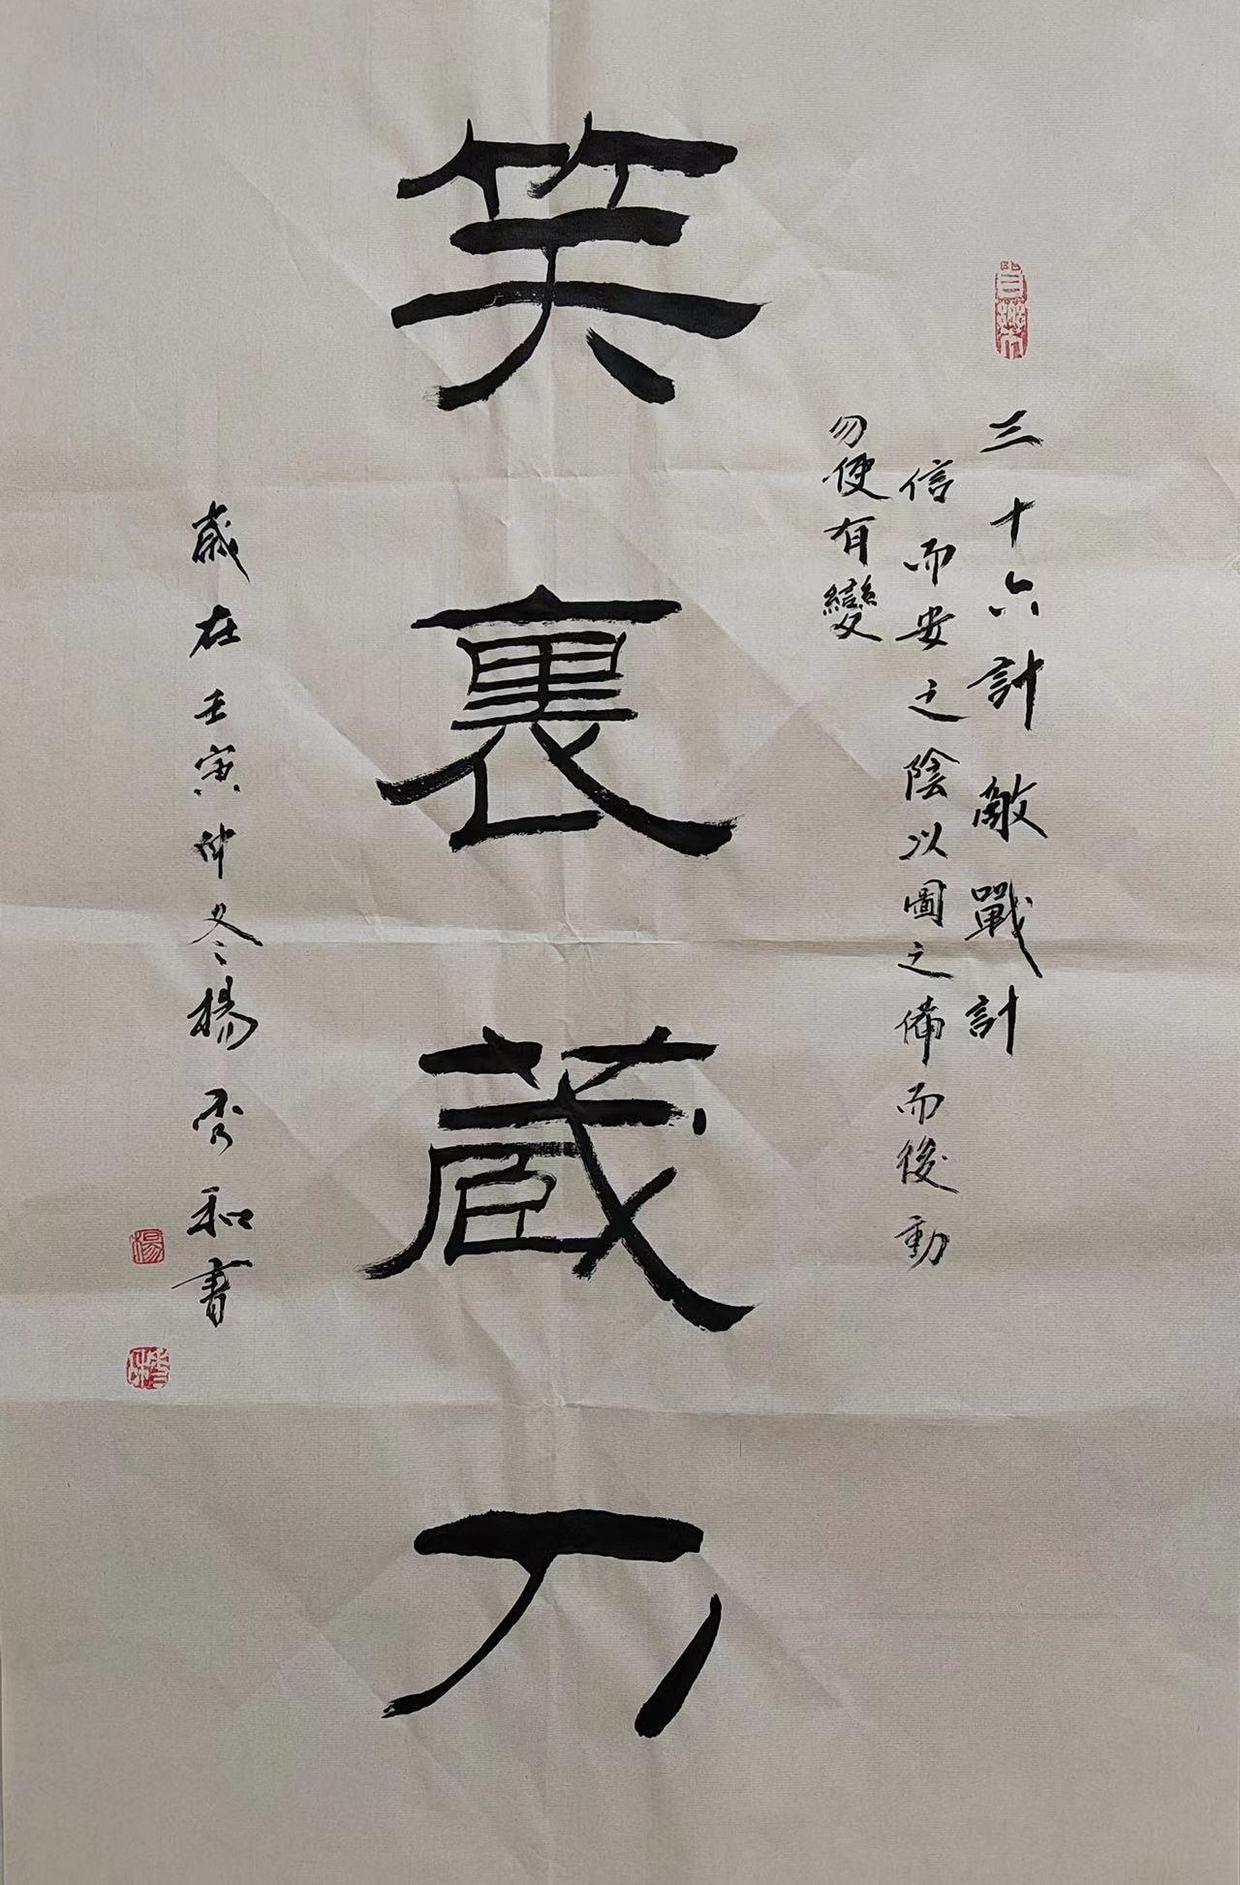 三十六計敵戰計
信而安之陰以圖之備而後動
勿使有變
笑裏藏刀
歲在壬寅仲冬楊秀和書
楊
秀和